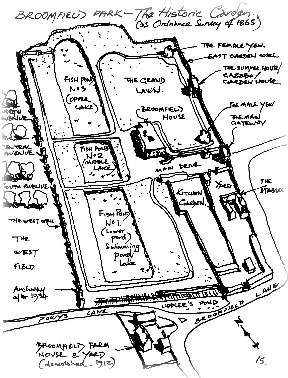 BROOMFIELD PARK—The Historic Garden
(as Ordnance Survey of 1865)
THE FEMALE YEW.
EAST GARDEN WALL
THE SUMMER HOUSE/
GAZEBO/
GARDEN HOUSE
FISH POND
No 3
(UPPER
LAKE)
THE GRAND
LAWN.
BROOMFIELD
HOUSE
THE MALE YEW
THE MAIN
GATEWAY
AVENUE
CENTRAL
AVENUE
FISH POND
No 2
(MIDDLE
LAKE)
MAIN DRIVE
SOUTH AVENUE
YARD
THE
STABLES
KITCHEN
GARDEN
FISH POND
No 1.
(Lower
pond)
Swimming
Pond
Lake
THE
WEST
FIELD
Archway
after 1934
POND
LANE
BROOMFIELD LANE
BROOMFIELD FARM
HOUSE & YARD
(demolished 1912)
15.